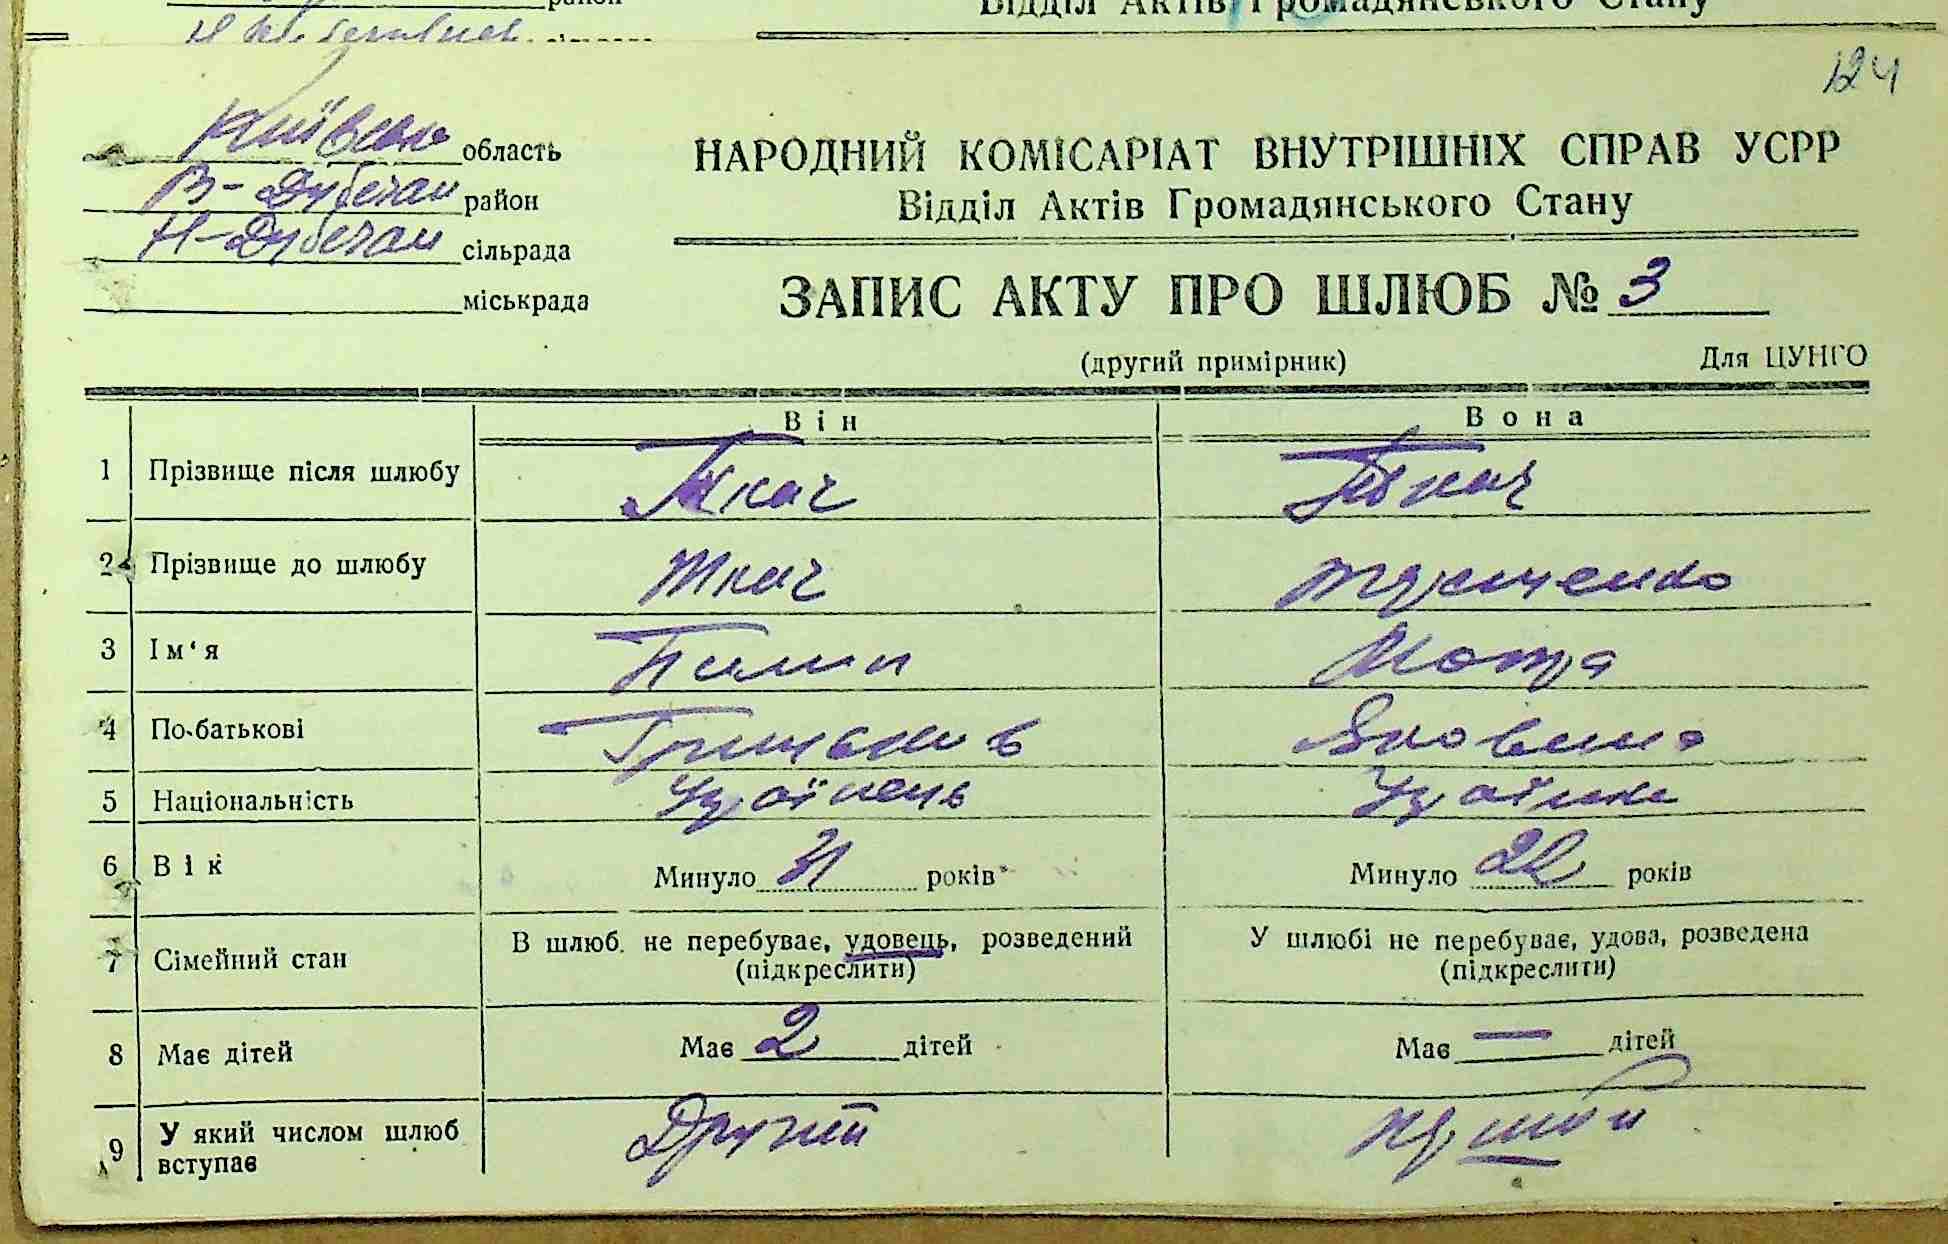 район
Відділ Актів Громадянського Стану
124
Київська область
В-Дубечан район
Н-Дубечан сільрада
міськрада
НАРОДНИЙ КОМІСАРІАТ ВНУТРІШНІХ СПРАВ УСРР
Відділ Актів Громадянського Стану
ЗАПИС АКТУ ПРО ШЛЮБ № 3
(другий примірник) Для ЦУНГО
Він Вона
1 Прізвище після шлюбу Ткач Ткач
2 Прізвище до шлюбу Ткач
3 Ім‘я Пилип Мотря
4 По-батькові Яковина
5 Національність Українець Українка
6 Вік Минуло 31 років Минуло 22 років
7 Сімейний стан В шлюб. не перебуває, удовець, розведений (підкреслити) У шлюбі не перебуває, удова, розведена (підкреслити)
8 Має дітей Має 2 дітей Має — дітей
9 У який числом шлюб вступає Другий